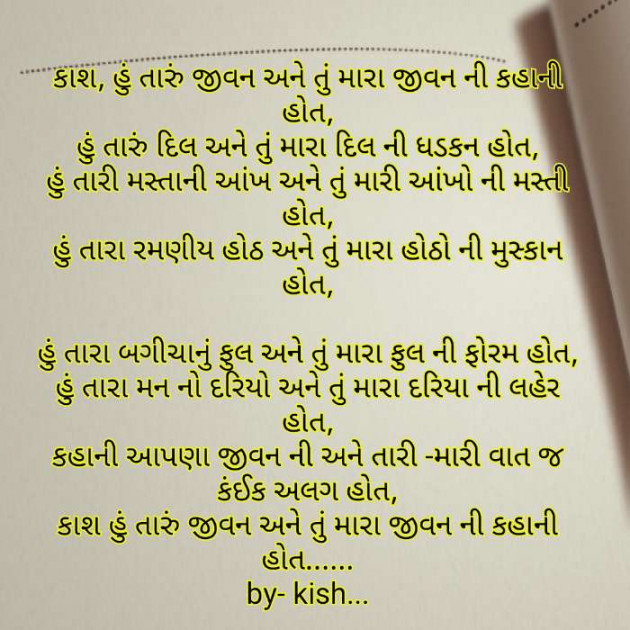 કાશ, હું તારું જીવન અને તું મારા જીવન ની કહાની
હોત,
હું તારું દિલ અને તું મારા દિલ ની ધડકન હોત,
હું તારી મસ્તાની આંખ અને તું મારી આંખો ની મસ્તી
હોત,
હું તારા રમણીય હોઠ અને તું મારા હોઠો ની મુસ્કાન
હોત,
હું તારા બગીચાનું ફુલ અને તું મારા ફુલ ની ફોરમ હોત,
હું તારા મન નો દરિયો અને તું મારા દરિયા ની લહેર
હોત,
કહાની આપણા જીવન ની અને તારી -મારી વાત જ
કંઈક અલગ હોત,
કાશ હું તારું જીવન અને તું મારા જીવન ની કહાની
હોત......
by- kish...